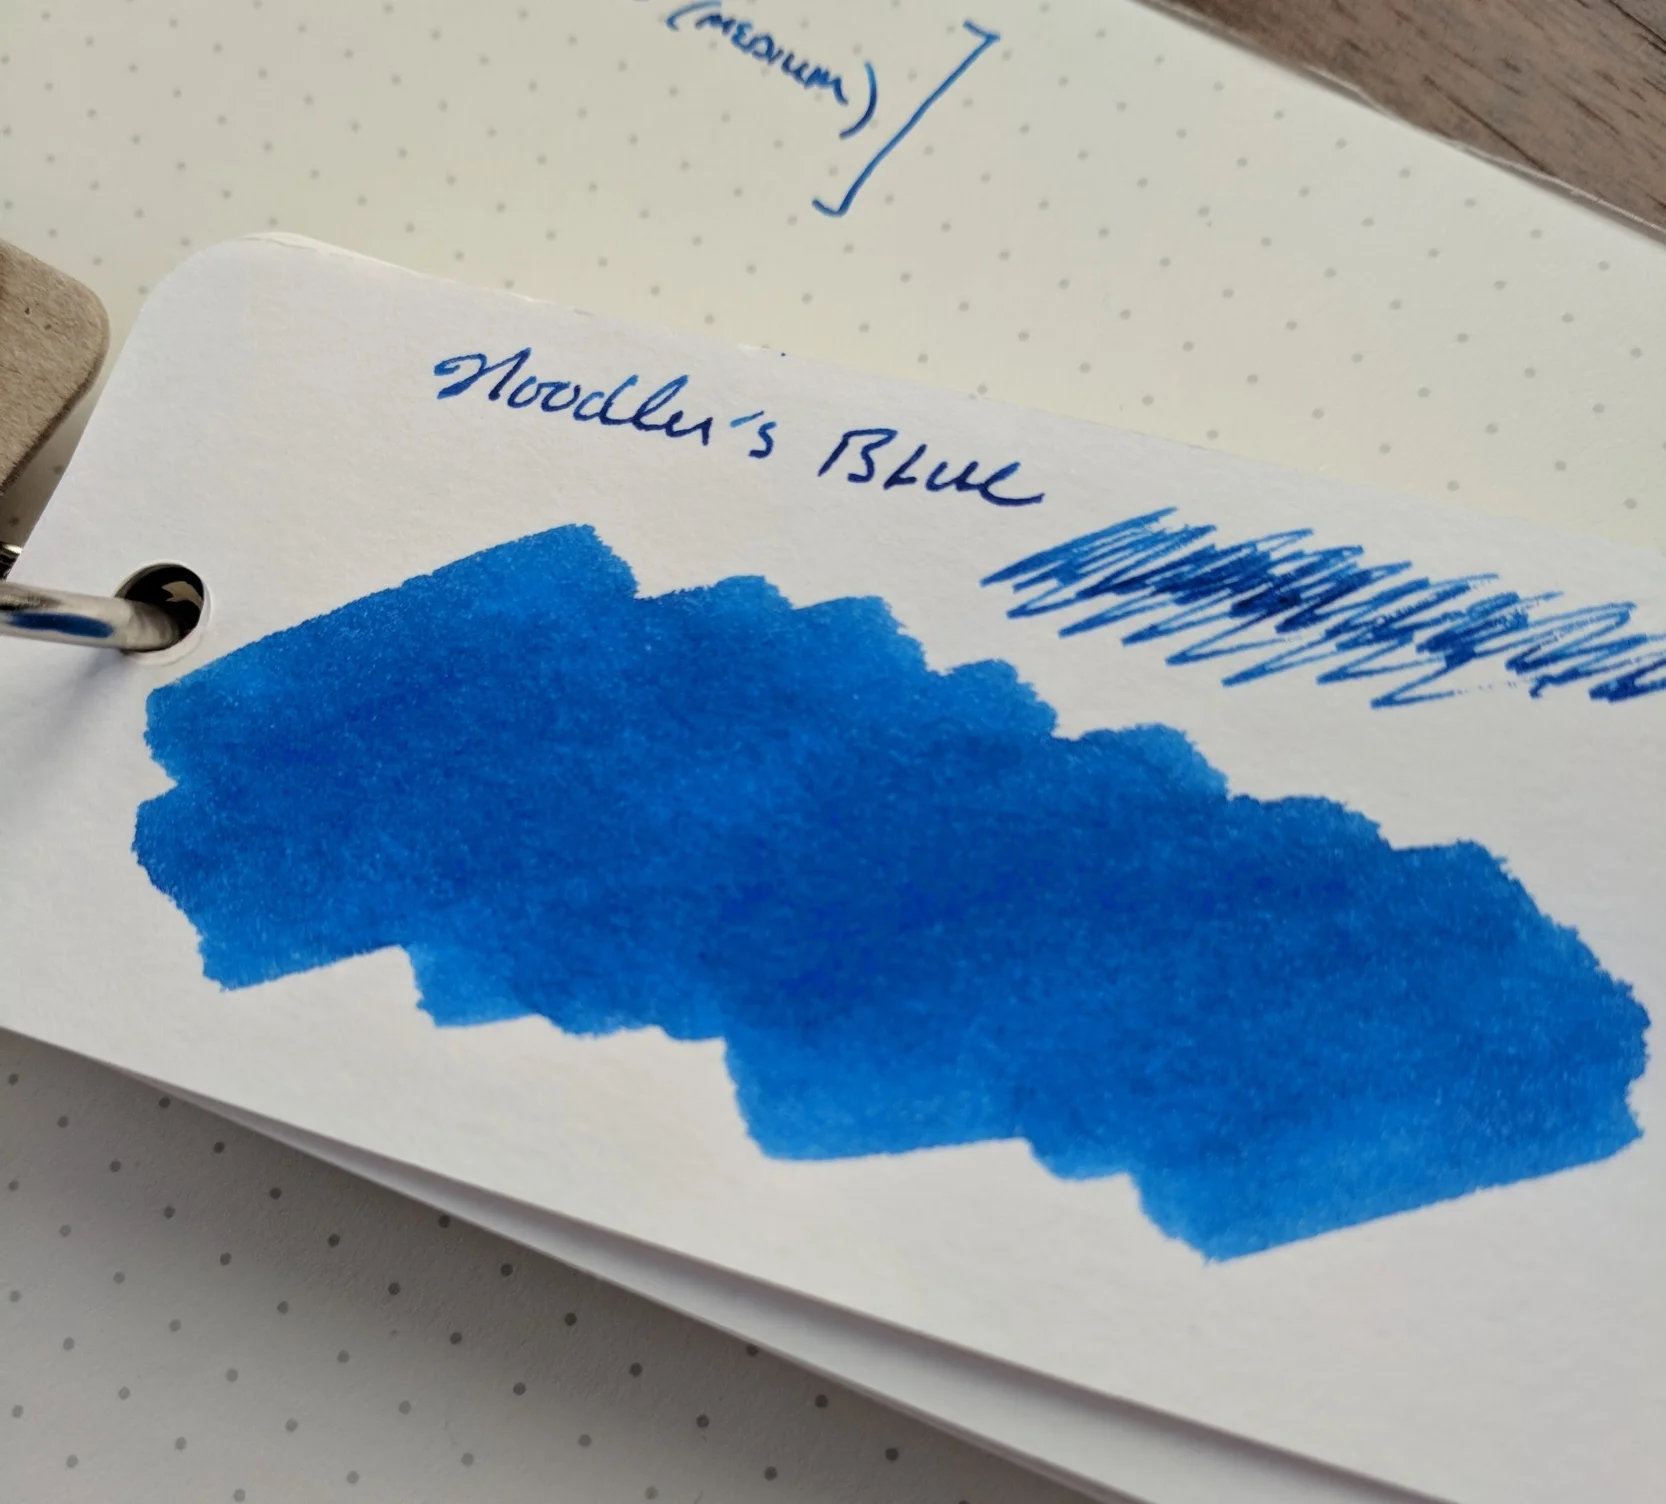 (MEDIUM)]
Noodler's Blue